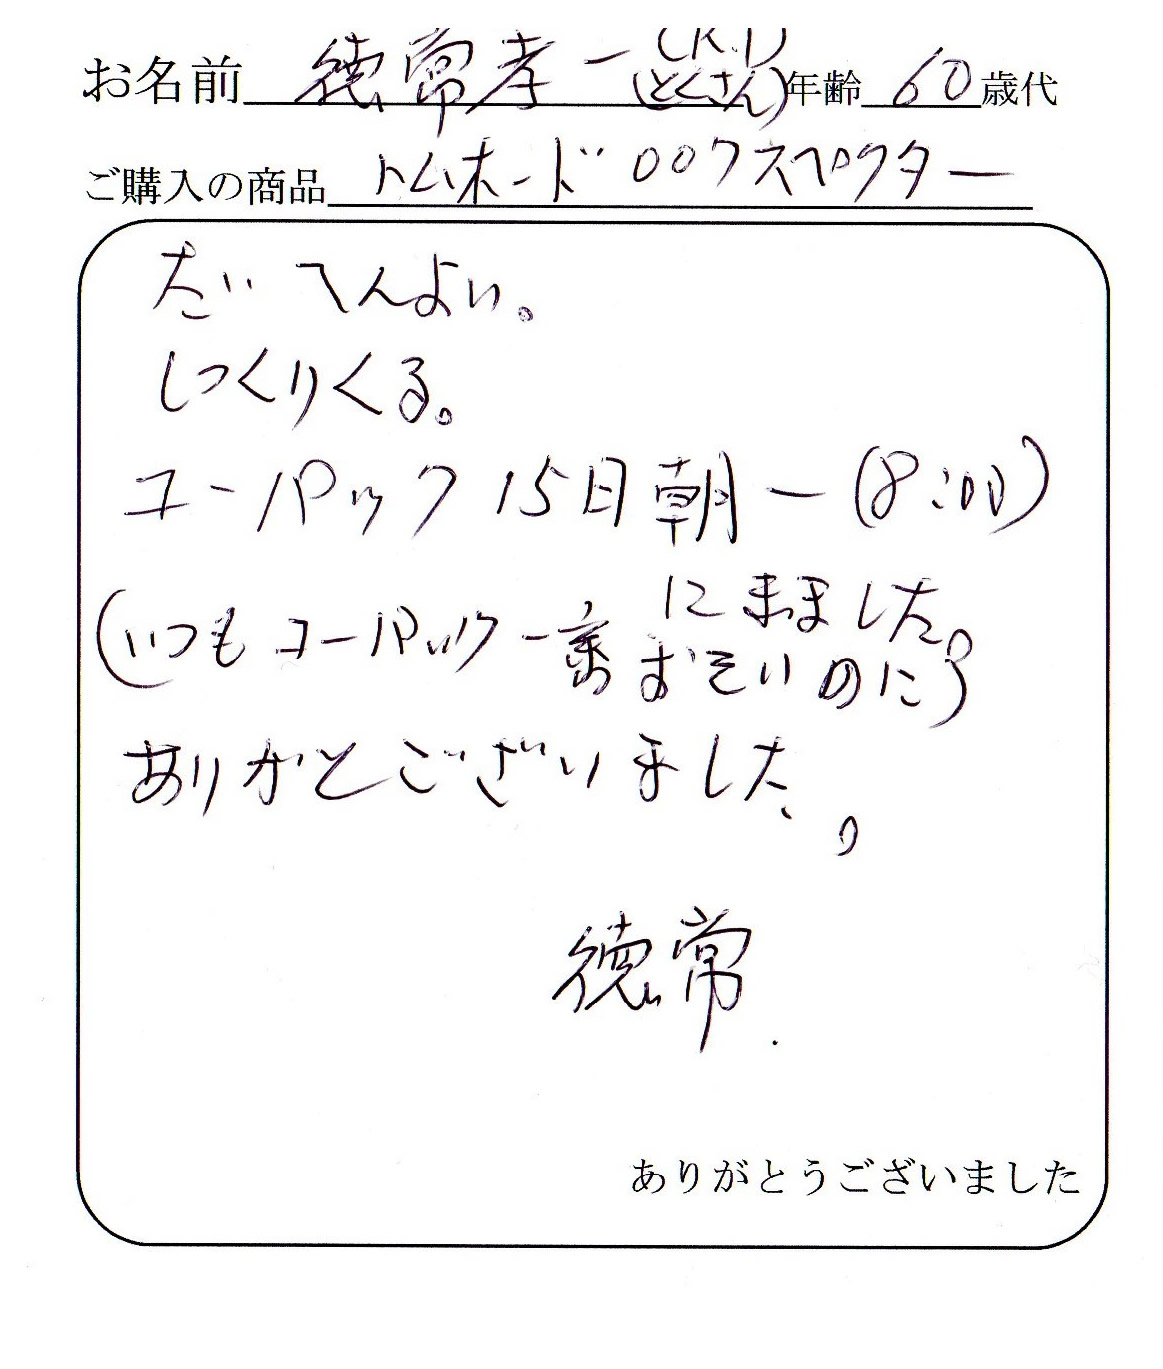 お名前 徳常孝一 (K.T) (とくさん) 年齢 60 歳代
ご購入の商品 トムホード 007スペクター
だいへんよい。
しっくりくる。
ユーパック 15日朝一 (8:00)
にきました。
(いつもユーパック一番おそいのに)
ありがとございました。
徳常.
ありがとうございました